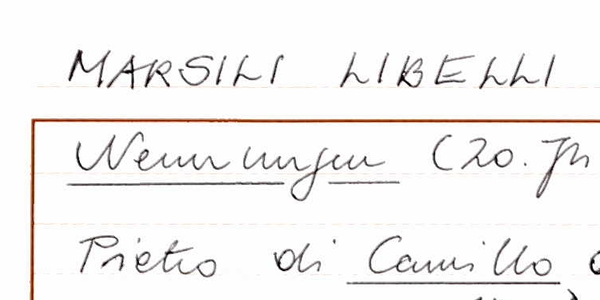 MARSILI LIBELLI
Nennungen (20. Jh
Pietro di Camillo